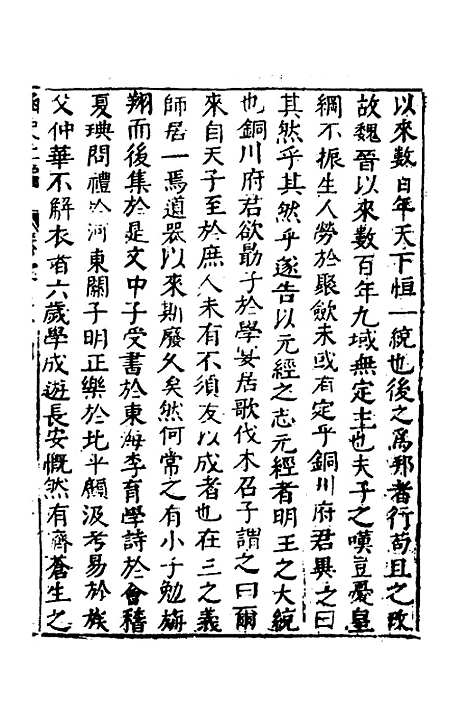 以來數百年天下恒一統也後之爲邦者行苟且之政
故魏晉以來數百年九域無定主也夫子之嘆豈憂皇
綱不振生人勞於聚歛未或有定乎銅川府君異之曰
其然乎其然乎遂告以元經之志元經者明王之大統
也銅川府君欲勖子於學安居歌伐木召子謂之曰爾
來自天子至於庶人未有不須友以成者也在三之義
師居一焉道器以來斯廢久矣然何常之有小子勉旃
翔而後集於是文中子受書於東海李育學詩於會稽
夏琠問禮於河東關子明正樂於北平願汲考易於族
父仲華不解衣者六歲學成遊長安慨然有濟蒼生之